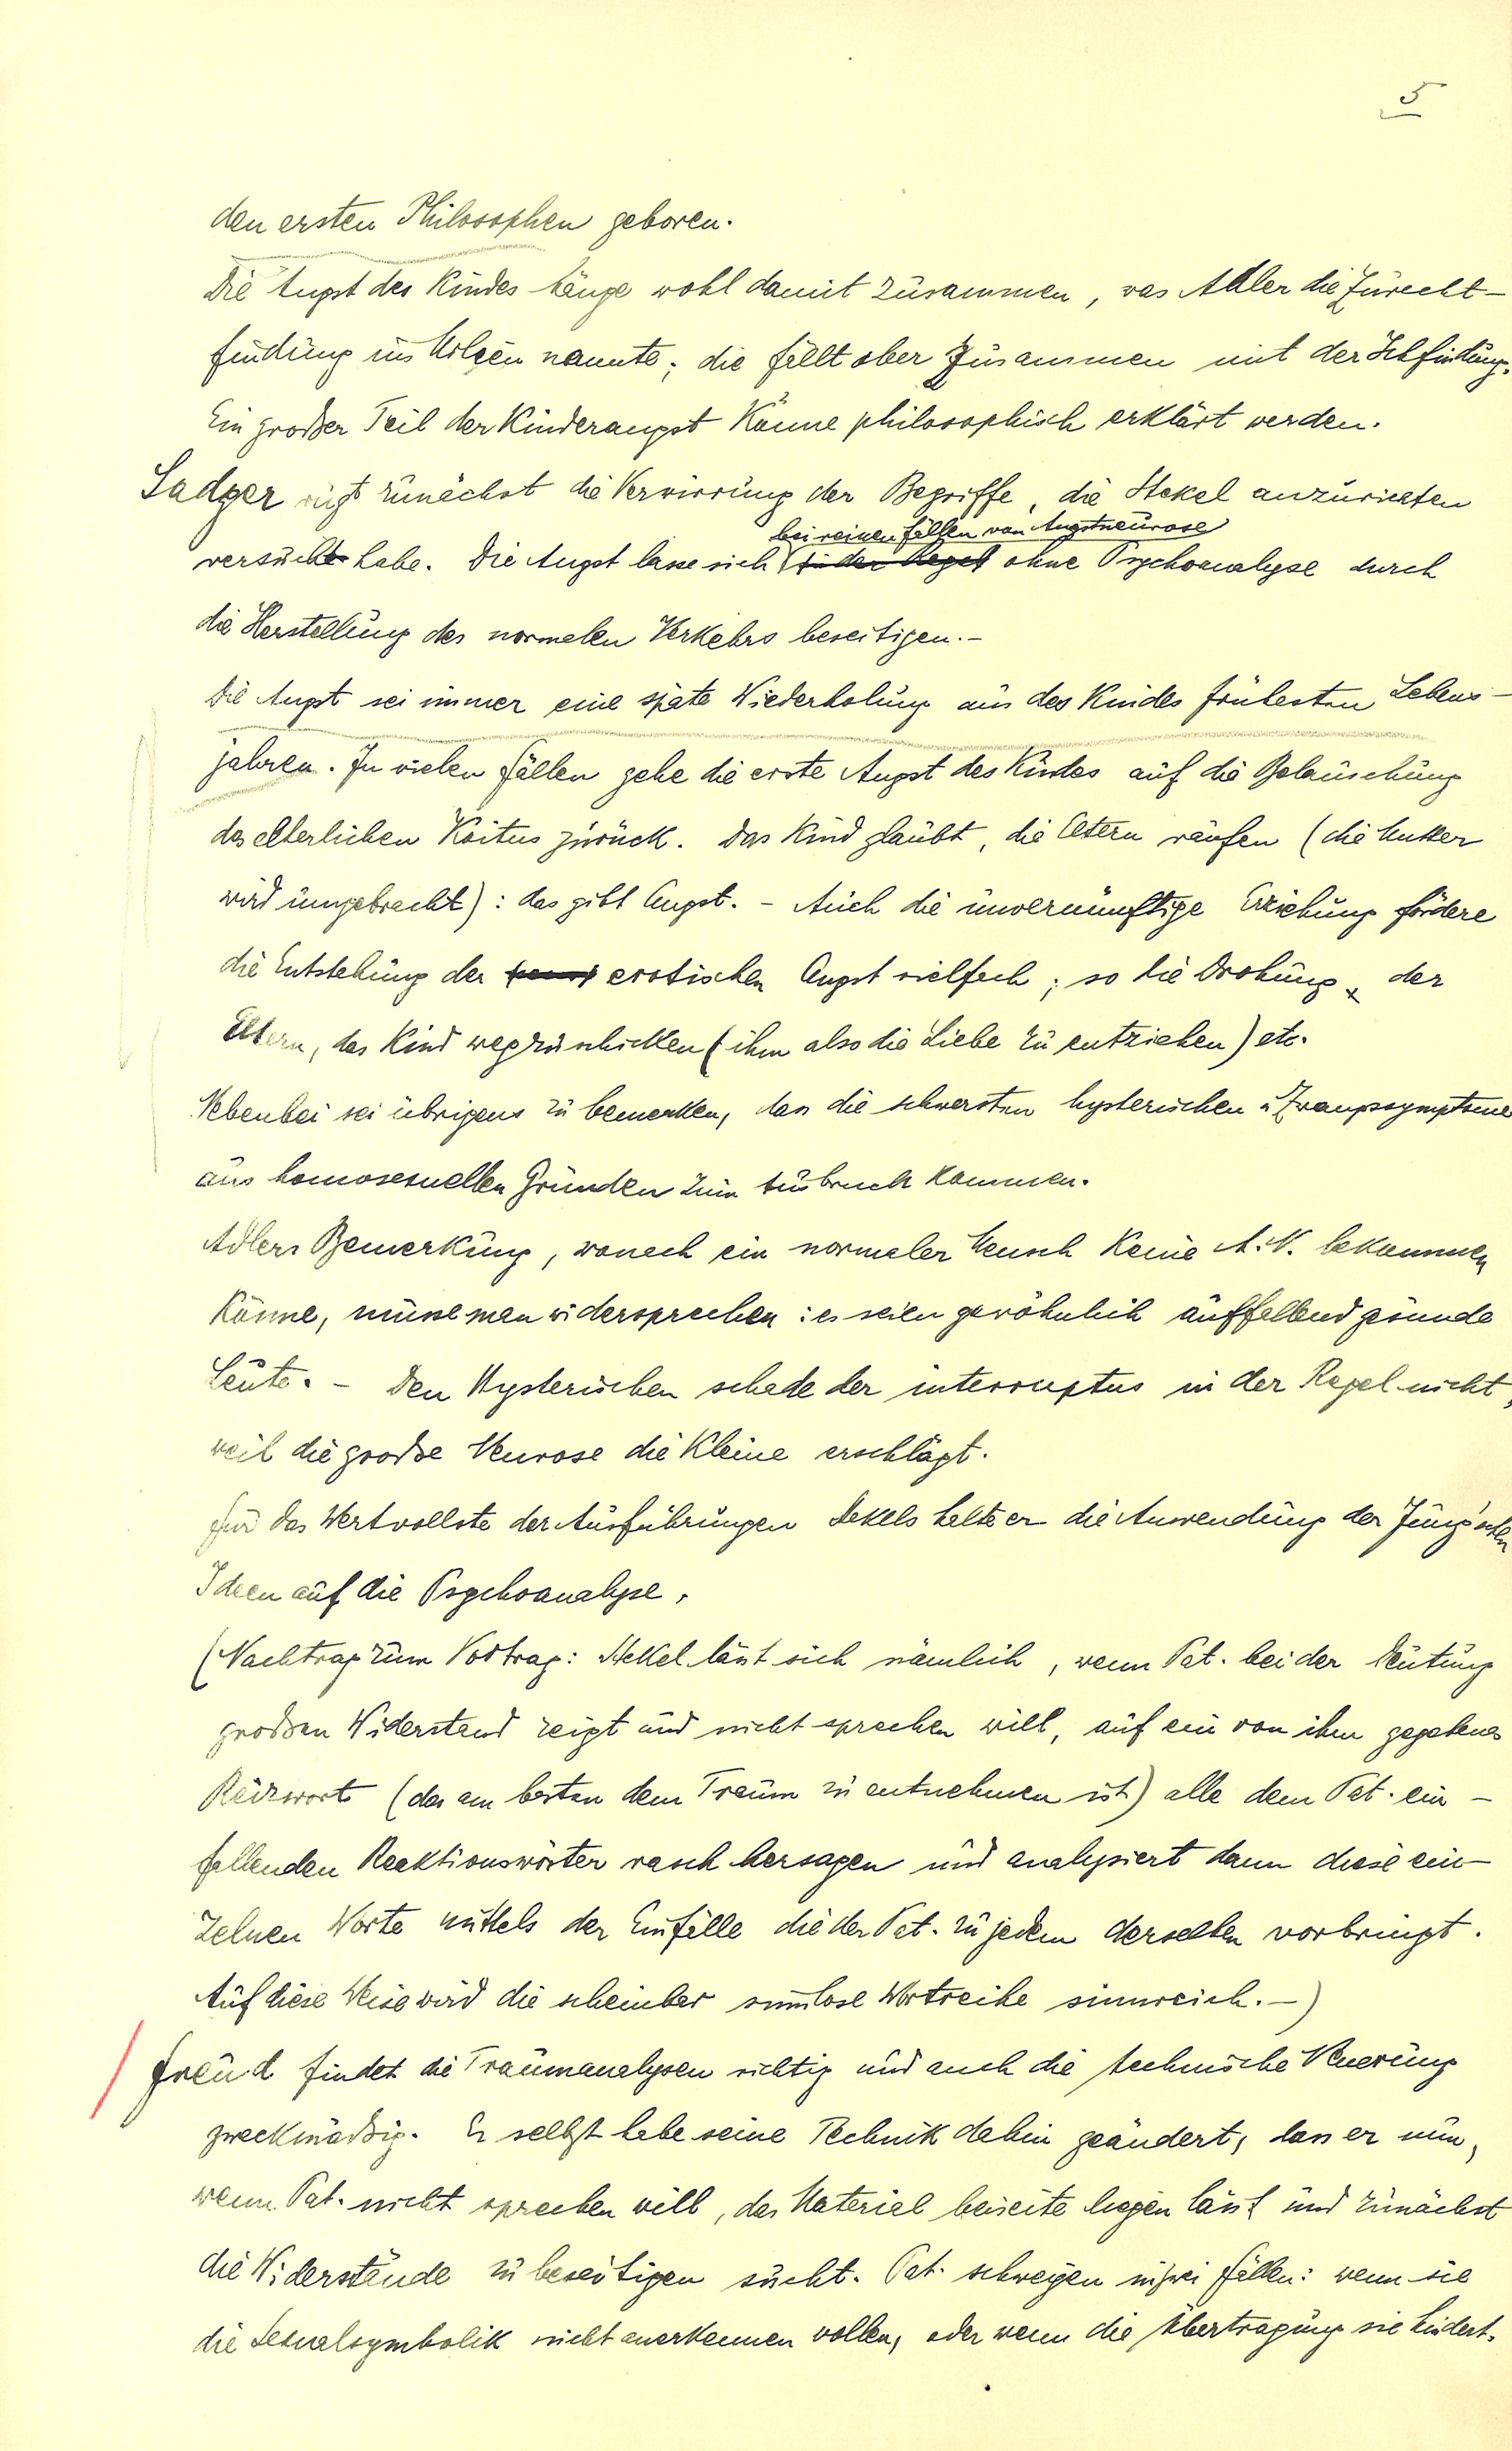 5
den ersten Philosophen geboren.
Die Angst des Kindes hänge wohl damit zusammen, was Adler die Zurecht-
findung ins Milieu nannte; die fällt aber zusammen mit der Ichfindung.
Ein großer Teil der Kinderangst könne philosophisch erklärt werden.
Sadger rügt zunächst die Verwirrung der Begriffe, die Stekel anzurichten
bei reinen Fällen von Angstneurose
versucht habe. Die Angst lasse sich in der Regel ohne Psychoanalyse durch
die Herstellung des normalen Verkehrs beseitigen.-
Die Angst sei immer eine späte Wiederholung aus des Kindes frühesten Lebens-
jahren. In vielen Fällen gehe die erste Angst des Kindes auf die Belauschung
des elterlichen Koitus zurück. Das Kind glaubt, die Eltern raufen (die Mutter
wird umgebracht): das gibt Angst. - Auch die unvernünftige Erziehung fördere
die Entstehung der erotischen Angst vielfach; so die Drohung der
Eltern, das Kind wegzuschicken (ihm also die Liebe zu entziehen) etc.
Nebenbei sei übrigens zu bemerken, dass die schwersten hysterischen u Zwangssymptome
aus homosexuellen Gründen zum Ausbruch kommen.
Adlers Bemerkung, wonach ein normaler Mensch keine A.N. bekommen
könne, müsse man widersprechen: es seien gewöhnlich auffallend gesunde
Leute. - Den Hysterischen schade der interruptus in der Regel nicht,
weil die große Neurose die kleine erschlägt.
Für das Wertvollste der Ausführungen Stekels halte er die Anwendung der Jung'schen
Ideen auf die Psychoanalyse.
(Nachtrag zum Vortrag: Stekel lässt sich nämlich, wenn Pat. bei der Deutung
großen Widerstand zeigt und nicht sprechen will, auf ein von ihm gegebenes
Reizwort (das am besten dem Traum zu entnehmen ist) alle dem Pat. ein-
fallenden Reaktionswörter rasch hersagen und analysiert dann diese ein-
zelnen Worte mittels der Einfälle die der Pat. zu jedem derselben vorbringt.
Auf diese Weise wird die scheinbar sinnlose Wortreihe sinnreich.-)
Freud findet die Traumanalysen richtig und auch die technische Neuerung
zweckmäßig. Er selbst habe seine Technik dahin geändert, dass er nun,
wenn Pat. nicht sprechen will, das Material beiseite liegen lässt und zunächst
die Widerstände zu beseitigen sucht. Pat. schweigen in zwei Fällen: wenn sie
die Sexualsymbolik nicht anerkennen wollen, oder wenn die Übertragung sie hindert.